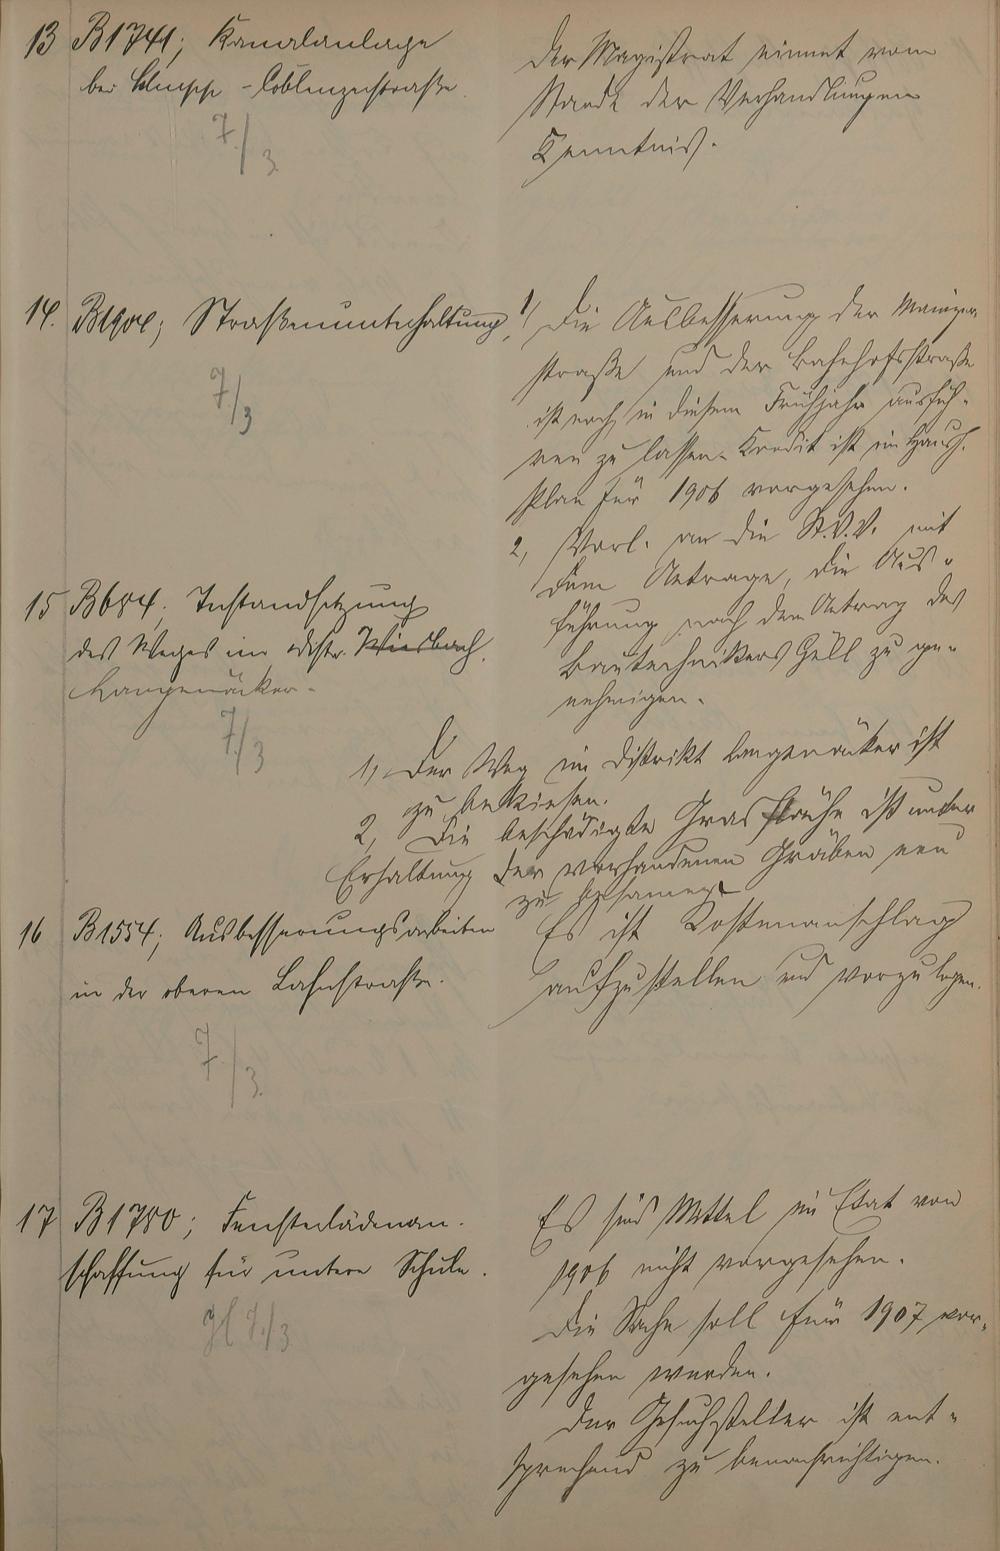 13 B1741; Kanalanlage
bei - Coblenzerstraße.
7./3.
Der Magistrat nimmt vom
Stande der Verhandlungen
Kenntnis.
14. B1904; Straßenunterhaltung,
7/3
1/ Die Ausbesserung der Mainzer
straße und der Bahnhofsstraße
ist noch in diesem Frühjahr ausfüh-
ren zu lassen. Kredit ist im Haush.
Plan für 1906 vorgesehen.
2, Vorl. an die St.V.V. mit
dem Antrage, die Aus-
führung nach dem Antrag des
Bautechnikers Göll zu ge-
nehmigen.
15 B684, Instandsetzung
des Weges im Distr. Wiesbach.
Langenäcker.
7./3
1, Der Weg im Distrikt Langenäcker ist
zu bekiesen.
2, Die beschädigte Grasfläche ist unter
Erhaltung der vorhandenen Gräben neu
zu besamen.
16 B1554; Ausbesserungsarbeiten
in der oberen Lahnstraße.
7./3.
Es ist Kostenanschlag
aufzustellen und vorzulegen.
17 B1780; Fensterlädenan-
schaffung für untere Schule.
7./3
Es sind Mittel im Etat von
1906 nicht vorgesehen.
Die Sache soll für 1907 vor-
gesehen werden.
Der Gesuchsteller ist ent-
sprechend zu benachrichtigen.